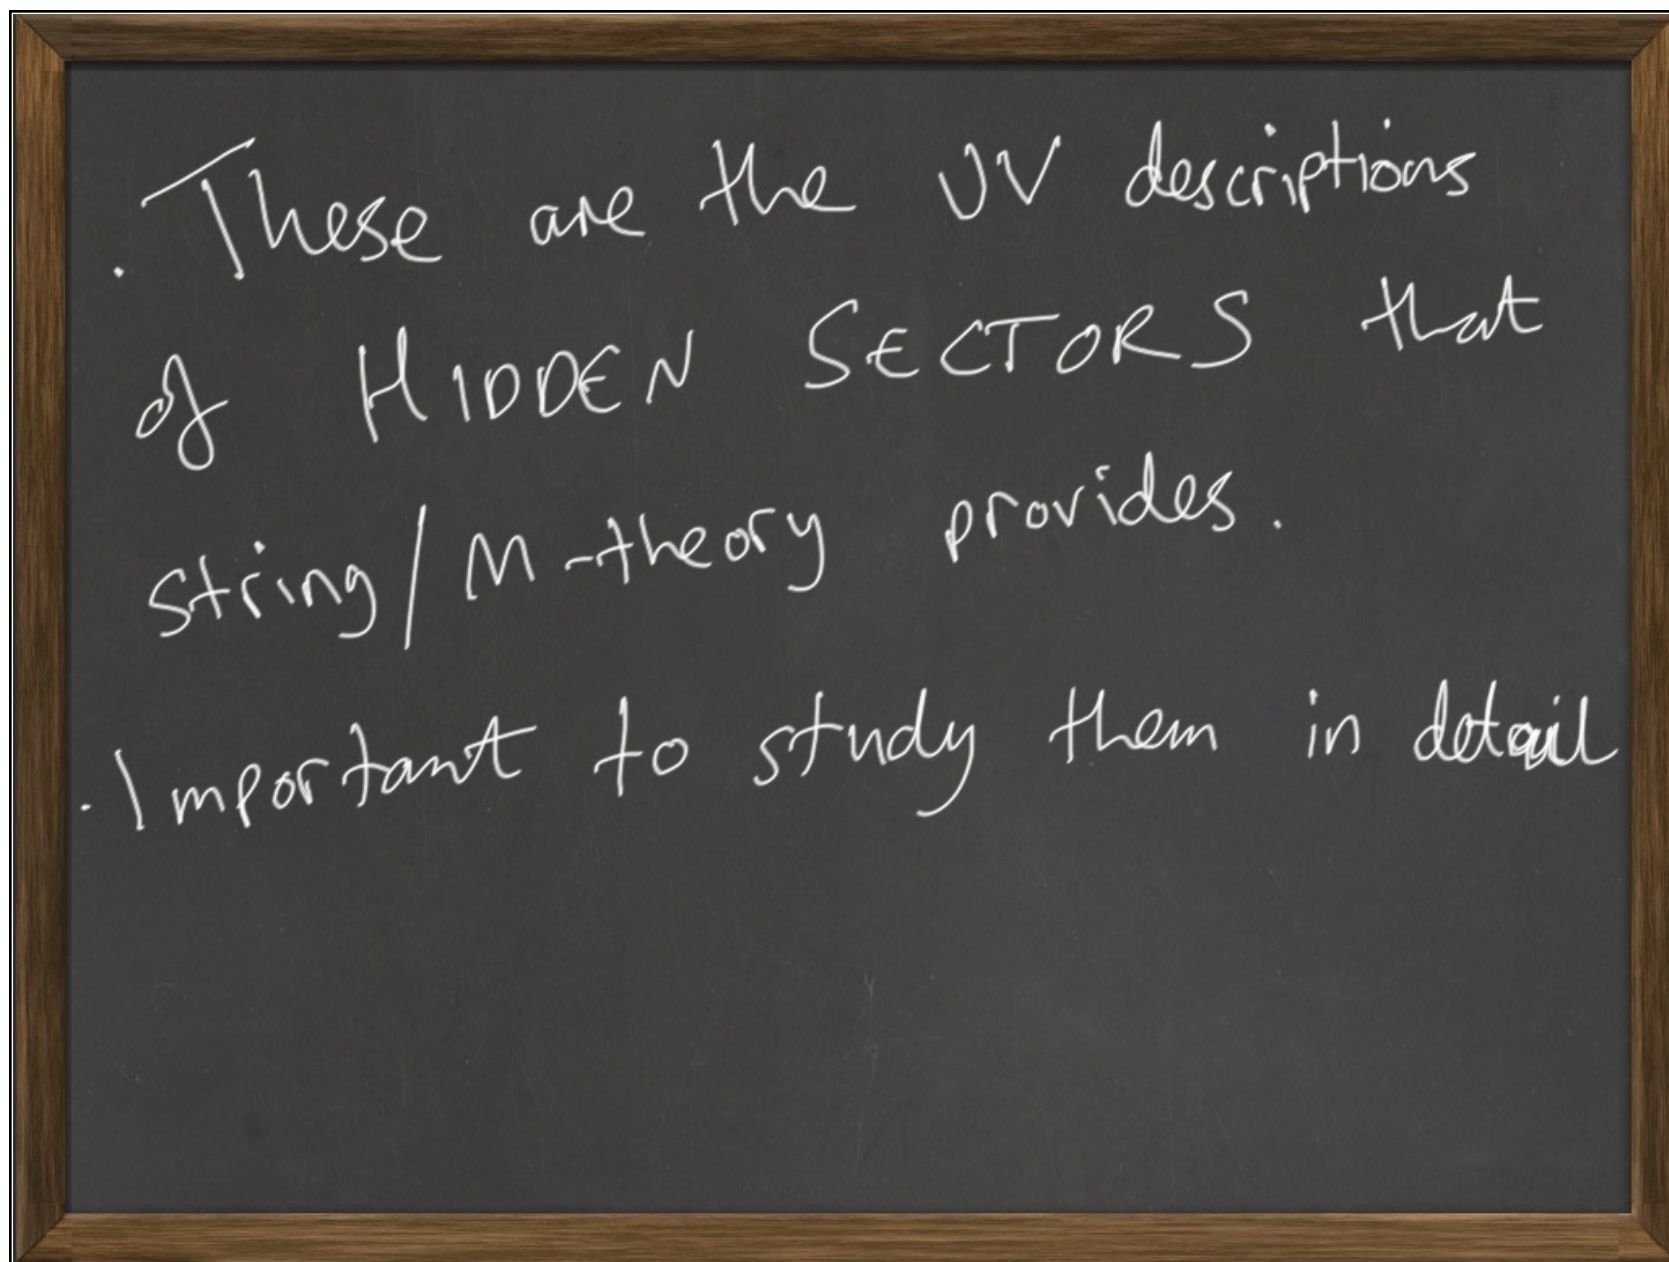 . These are the UV descriptions
of HIDDEN SECTORS that
string/M-theory provides.
. Important to study them in detail